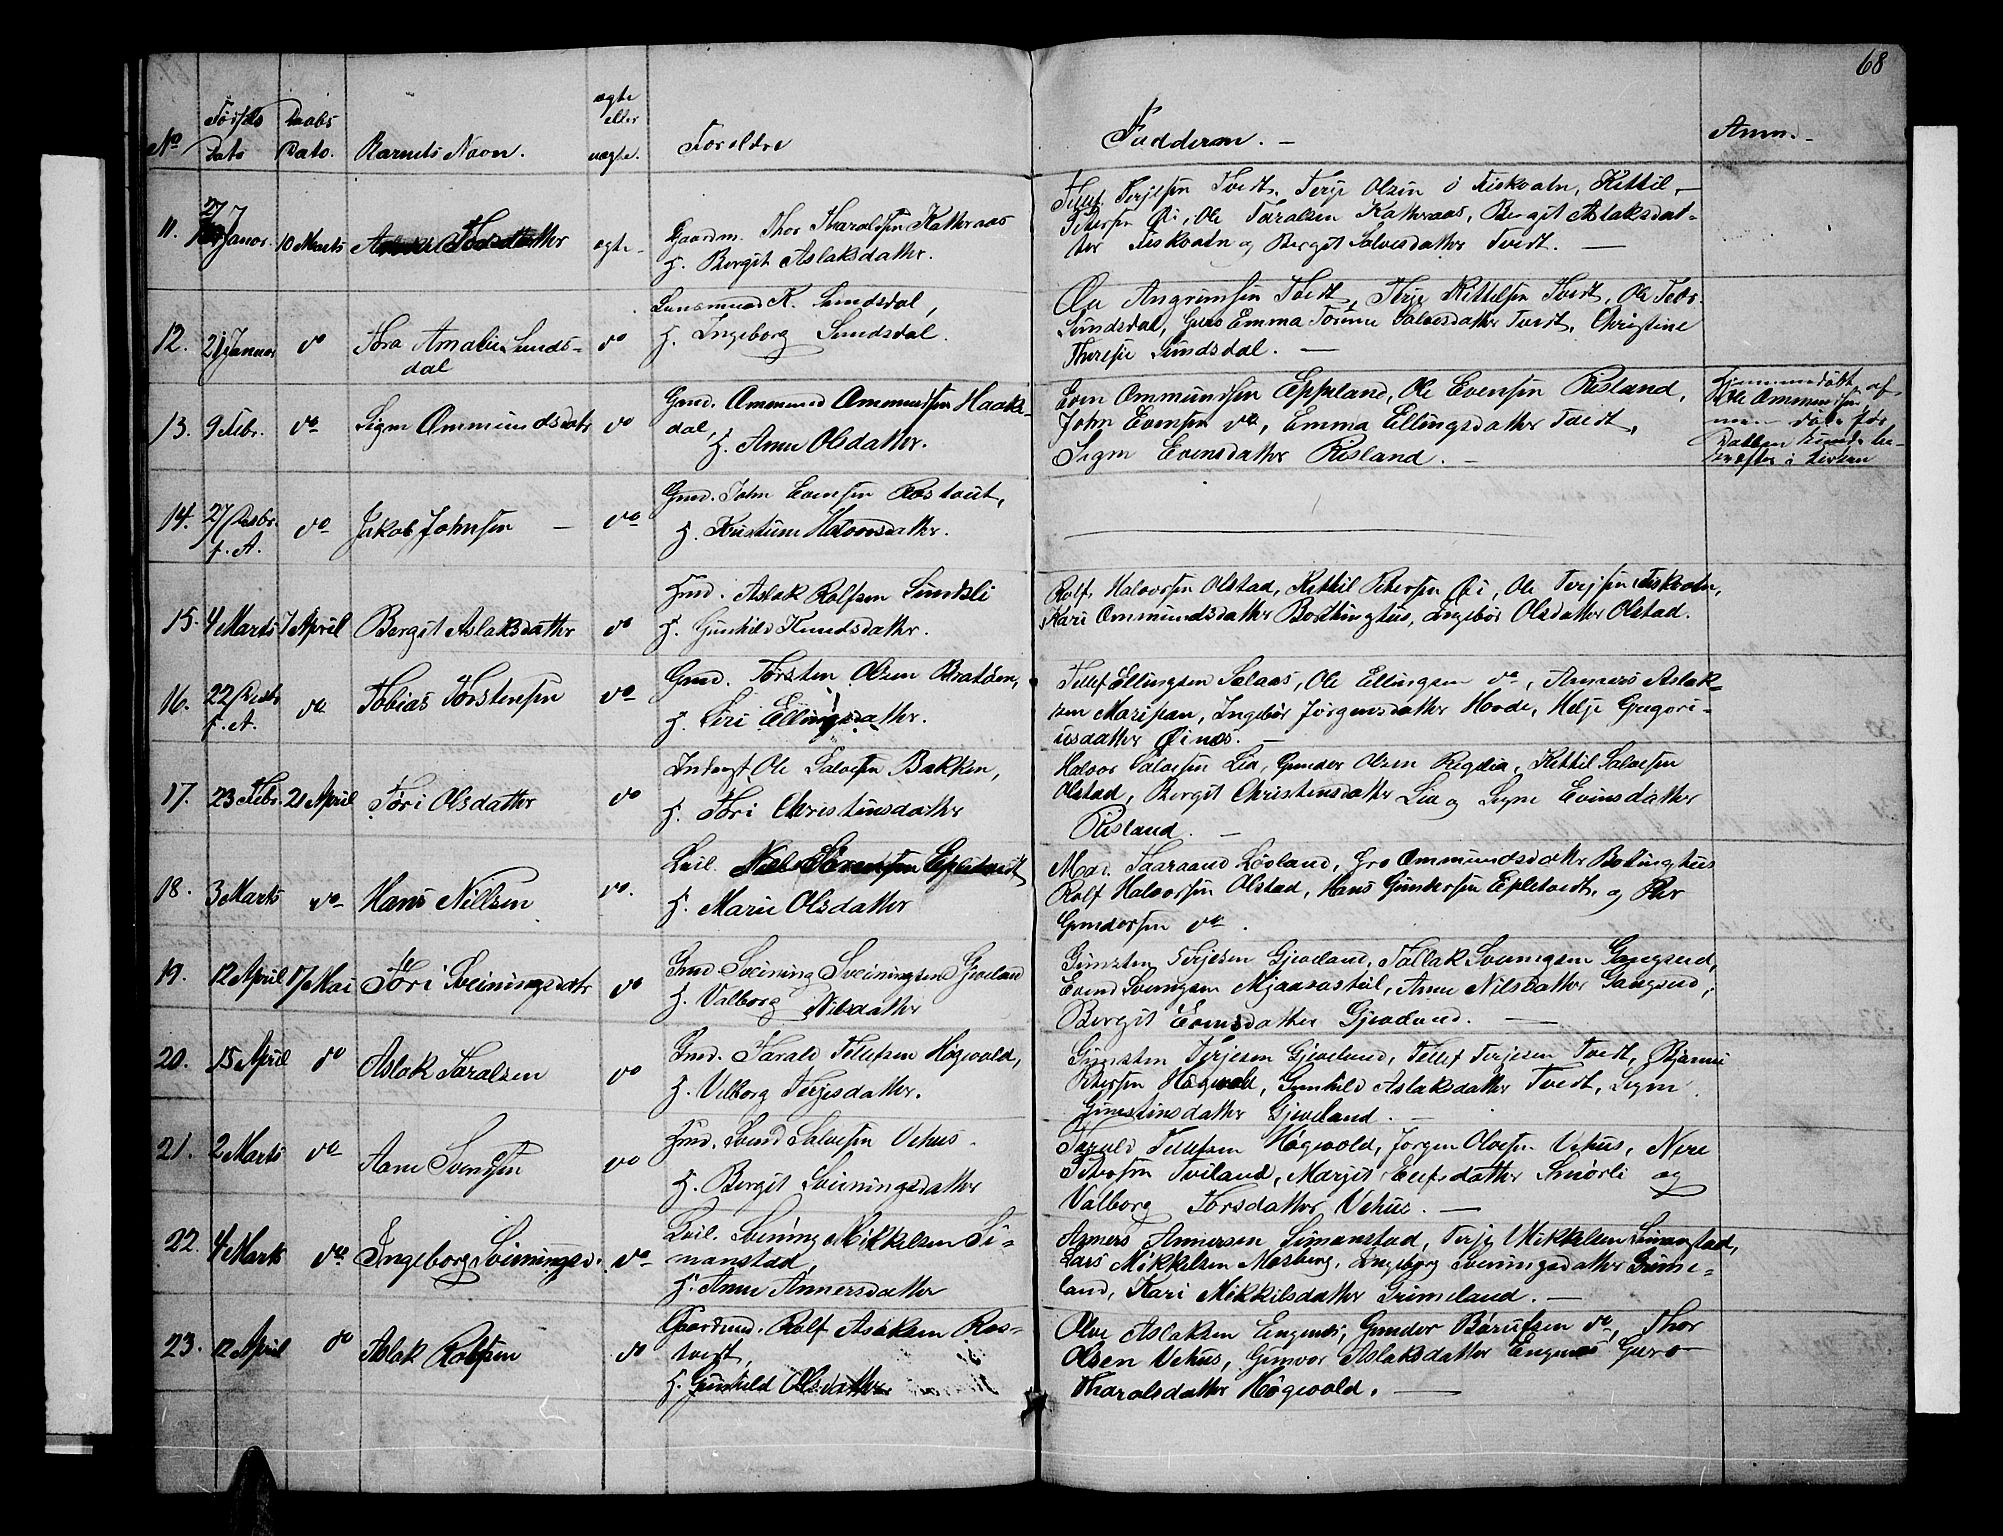 68
No Fødsels Dato Daabs Dato. Barnets Navn. ægte eller uægte. Foreldre Fadderne. — Anm. —
11. 27 Januar. 10 Marts Thorsdatter ægte Gaardm. Thor Tharaldsen Katteraas
f. Bergit Aslaksdatter.
Tellef Terjesen Tvedt, Terje Olsen Fiskvatn, Kittil
Petersen Øi, Ole Taralsen Katteraas, Bergit Aslaksdat-
ter Fiskvatn og Bergit Salvesdatter Tvedt. —
12. 21 Januar do Thora Amalie Sunds-
dal
do K. Sundsdal,
f. Ingeborg Sundsdal.
Ole Angrimsen Tvedt, Terje Kittelsen Tvedt, Ole
Sundsdal, Emma Salvesdatter Tvedt, Christine
Therese Sundsdal. —
13. 9 Febr. do Signe Ommundsdatr do Gmd. Ommund Ommundsen Haaks-
dal,
f. Anne Olsdatter.
Even Ommundsen Eppeland, Ole Evensen Risland,
John Evensen do, Emma Ellingsdatter Tvedt,
Signe Evensdatter Risland. —
Hjemmedøbt af
Ole Ommundsen
men døde før
Daaben kunde be-
kræftes i Kirken
14. 27/Decbr. f. A. do Jakob Johnsen — do Gmd. John Evensen Rostvet,
f. Kirstine Halvorsdatter.
15. 4 Marts 7 April Bergit Aslaksdatter do Hmd. Aslak Rolfsen Sundsli
f. Gunhild Knudsdatter.
Rolf Halvorsen Olstad, Kittil Petersen Øi, Ole Terjesen Fiskvatn,
Kari Ommundsdatter Bottinghus, Ingebor Olsdatter Olstad.
16. 22/Decbr f. A. do Tobias Torstensen do Gmd. Torsten Olsen
f. Siri Ellingsdatter.
Tellef Ellingsen Salaas, Ole Ellingsen do, Anners Aslak-
sen Ingebor Jørgensdatter Hovde, Helje Gregori-
usdatter Øinæs. —
17. 23 Febr. 21 April Tøri Olsdatter do Inderst Ole Salvesen Bakken,
f. Tøri Christensdatter
Halvor Salvesen Lia, Gunder Olsen Kittil Salvesen
Olstad, Bergit Christensdatter Lia og Signe Evensdatter
Risland. —
18. 3 Marts do Hans Nielsen do. Leil. Niels Epletveit
f. Marie Olsdatter
Mad. Taaraand Løvland, Gro Ommundsdatter Bottinghus
Rolf Halvorsen Olstad, Hans Gundersen Epletvedt, og Per
Gundersen do.
19. 12 April 17 Mai Tøri Sveiningsdatr do Gmd Sveining Sveiningsen Gjeveland
f. Valborg Nilsdatter
Gunsten Terjesen Gjeveland, Tallak Sveningsen Gangsud,
Evend Sveningsen Mjaavasteil, Anne Nilsdatter Gangsud,
Bergit Evensdatter Gjeveland. —
20. 15 April do Aslak Taralsen do Gmd. Harald Tellefsen Høgevold,
f. Vilborg Terjesdatter.
Gunsten Terjesen Gjeveland, Tellef Terjesen Tvedt, Bjarne
Petersen Høgevold, Gunhild Aslaksdatter Tvedt, Signe
Gunstensdatter Gjeveland. —
21. 2 Marts do Aane Svensen do Hmd. Svend Salvesen Vehus.
f. Bergit Sveiningsdatter
Tarald Tellefsen Høgevold, Jørgen Olvesen Vehus,
Tveiland, Margit datter Smørli og
Valborg Torsdatter Vehus. —
22. 4 Marts do Ingeborg Sveiningsd. do Leil. Svening Mikkelsen Si-
manstad,
f. Anne Annersdatter
Anners Annersen Simanstad, Terje Mikkelsen Simanstad,
Lars Mikkelsen Mosberg, Ingeborg Sveningsdatter Grime-
land, Kari Mikkelsdatter Grimeland. —
23. 12 April do Aslak Rolfsen do Gaardmd. Rolf Aslaksen Ros-
tvedt,
f. Gunhild Olsdatter
Olve Aslaksen Engenes, Gunder Børufsen do, Thor
Olsen Vehus, Gunvor Aslaksdatter Engenes Guro
Tharalsdatter Høgevold. —